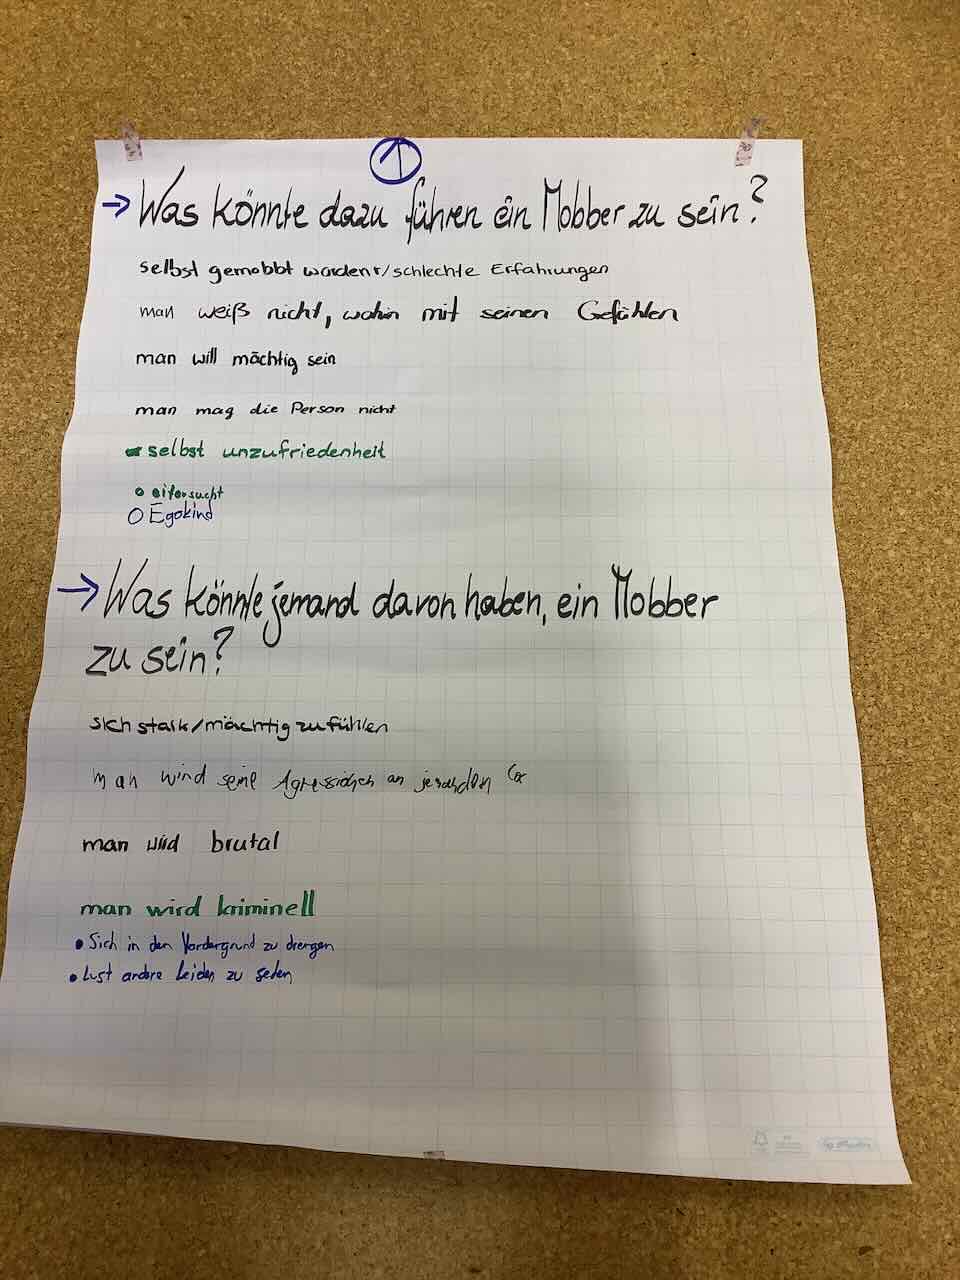 1
→ Was könnte dazu führen ein Mobber zu sein?
selbst gemobbt worden /schlechte Erfahrungen
man weiß nicht, wohin mit seinen Gefühlen
man will mächtig sein
man mag die Person nicht
selbst unzufriedenheit
eifersucht
Egokind
→ Was könnte jemand davon haben, ein Mobber
zu sein?
sich stark/mächtig zu fühlen
man wird seine Agressionen an jemanden
man wird brutal
man wird kriminell
• Sich in den Vordergrund zu drengen
• Lust andere Leiden zu sehen